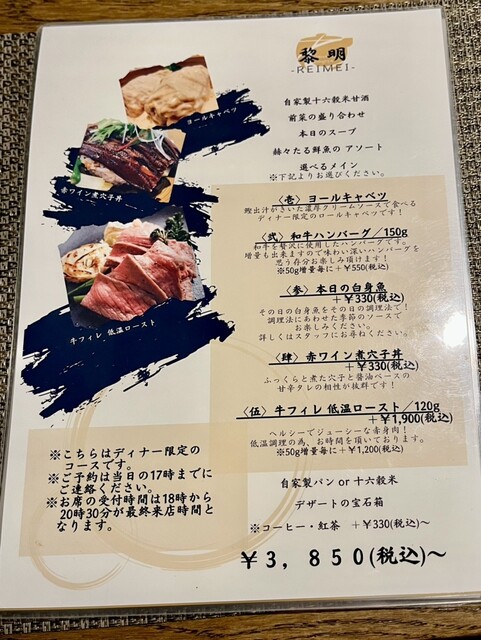 黎明
-REIMEI-
自家製十六穀米甘酒
前菜の盛り合わせ
本日のスープ
赫々たる鮮魚の アソート
選べるメイン
※下記よりお選びください。
ヨールキャベツ
赤ワイン煮穴子丼
牛フィレ 低温ロースト
〈壱〉ヨールキャベツ
鰹出汁がきいた濃厚クリームソースで食べる
ディナー限定のロールキャベツです！
〈弐〉和牛ハンバーグ/150g
和牛を贅沢に使用したハンバーグです。
増量も出来ますので味わい深いハンバーグを
思う存分お楽しみ頂けます！
※50g増量毎に＋¥550(税込)
〈参〉本日の白身魚
＋¥330(税込)
その日の白身魚をその日の調理法で！
調理法にあわせた季節のソースで
お楽しみください。
詳しくはスタッフにお尋ねください。
〈肆〉赤ワイン煮穴子丼
＋¥330(税込)
ふっくらと煮た穴子と醤油ベースの
甘辛タレの相性が抜群です！
〈伍〉牛フィレ 低温ロースト/120g
＋¥1,900(税込)
ヘルシーでジューシーな赤身肉！
低温調理の為、お時間を頂いております。
※50g増量毎に＋¥1,200(税込)
※こちらはディナー限定の
コースです。
※ご予約は当日の17時までに
ご連絡ください。
※お席の受付時間は18時から
20時30分が最終来店時間と
なります。
自家製パン or 十六穀米
デザートの宝石箱
※コーヒー・紅茶 ＋¥330(税込)～
¥3,850(税込)～